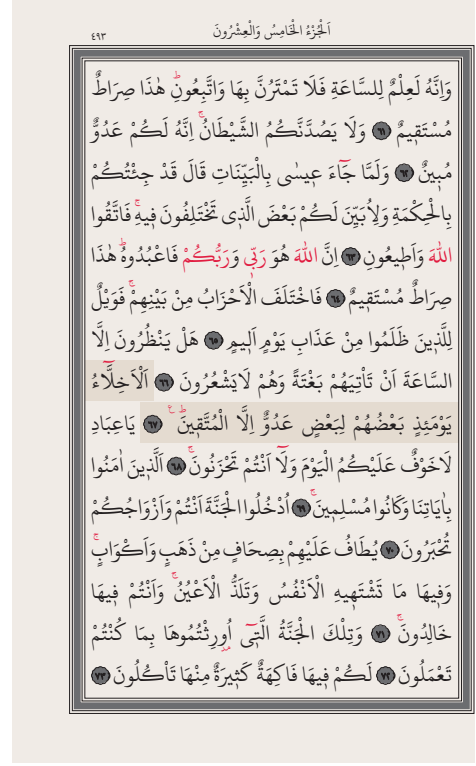 اَلْجُزْءُ الْخَامِسُ وَالْعِشْرُونَ ٤٩٣
وَاِنَّهُ لَعِلْمٌ لِلسَّاعَةِ فَلَا تَمْتَرُنَّ بِهَا وَاتَّبِعُونِۜ هٰذَا صِرَاطٌ
مُسْتَق۪يمٌ ﴿٦١﴾ وَلَا يَصُدَّنَّكُمُ الشَّيْطَانُۚ اِنَّهُ لَكُمْ عَدُوٌّ
مُب۪ينٌ ﴿٦٢﴾ وَلَمَّا جَٓاءَ ع۪يسٰى بِالْبَيِّنَاتِ قَالَ قَدْ جِئْتُكُمْ
بِالْحِكْمَةِ وَلِاُبَيِّنَ لَكُمْ بَعْضَ الَّذ۪ي تَخْتَلِفُونَ ف۪يهِۚ فَاتَّقُوا
اللّٰهَ وَاَط۪يعُونِ ﴿٦٣﴾ اِنَّ اللّٰهَ هُوَ رَبّ۪ي وَرَبُّكُمْ فَاعْبُدُوهُۜ هٰذَا
صِرَاطٌ مُسْتَق۪يمٌ ﴿٦٤﴾ فَاخْتَلَفَ الْاَحْزَابُ مِنْ بَيْنِهِمْۚ فَوَيْلٌ
لِلَّذ۪ينَ ظَلَمُوا مِنْ عَذَابِ يَوْمٍ اَل۪يمٍ ﴿٦٥﴾ هَلْ يَنْظُرُونَ اِلَّا
السَّاعَةَ اَنْ تَأْتِيَهُمْ بَغْتَةً وَهُمْ لَايَشْعُرُونَ ﴿٦٦﴾ اَلْاَخِلَّٓاءُ
يَوْمَئِذٍ بَعْضُهُمْ لِبَعْضٍ عَدُوٌّ اِلَّا الْمُتَّق۪ينَۜ ۟ ﴿٦٧﴾ يَاعِبَادِ
لَاخَوْفٌ عَلَيْكُمُ الْيَوْمَ وَلَٓا اَنْتُمْ تَحْزَنُونَۚ ﴿٦٨﴾ اَلَّذ۪ينَ اٰمَنُوا
بِاٰيَاتِنَا وَكَانُوا مُسْلِم۪ينَۚ ﴿٦٩﴾ اُدْخُلُوا الْجَنَّةَ اَنْتُمْ وَاَزْوَاجُكُمْ
تُحْبَرُونَ ﴿٧٠﴾ يُطَافُ عَلَيْهِمْ بِصِحَافٍ مِنْ ذَهَبٍ وَاَكْوَابٍۚ
وَف۪يهَا مَا تَشْتَه۪يهِ الْاَنْفُسُ وَتَلَذُّ الْاَعْيُنُۚ وَاَنْتُمْ ف۪يهَا
خَالِدُونَۚ ﴿٧١﴾ وَتِلْكَ الْجَنَّةُ الَّت۪ٓي اُو۫رِثْتُمُوهَا بِمَا كُنْتُمْ
تَعْمَلُونَ ﴿٧٢﴾ لَكُمْ ف۪يهَا فَاكِهَةٌ كَث۪يرَةٌ مِنْهَا تَأْكُلُونَ ﴿٧٣﴾